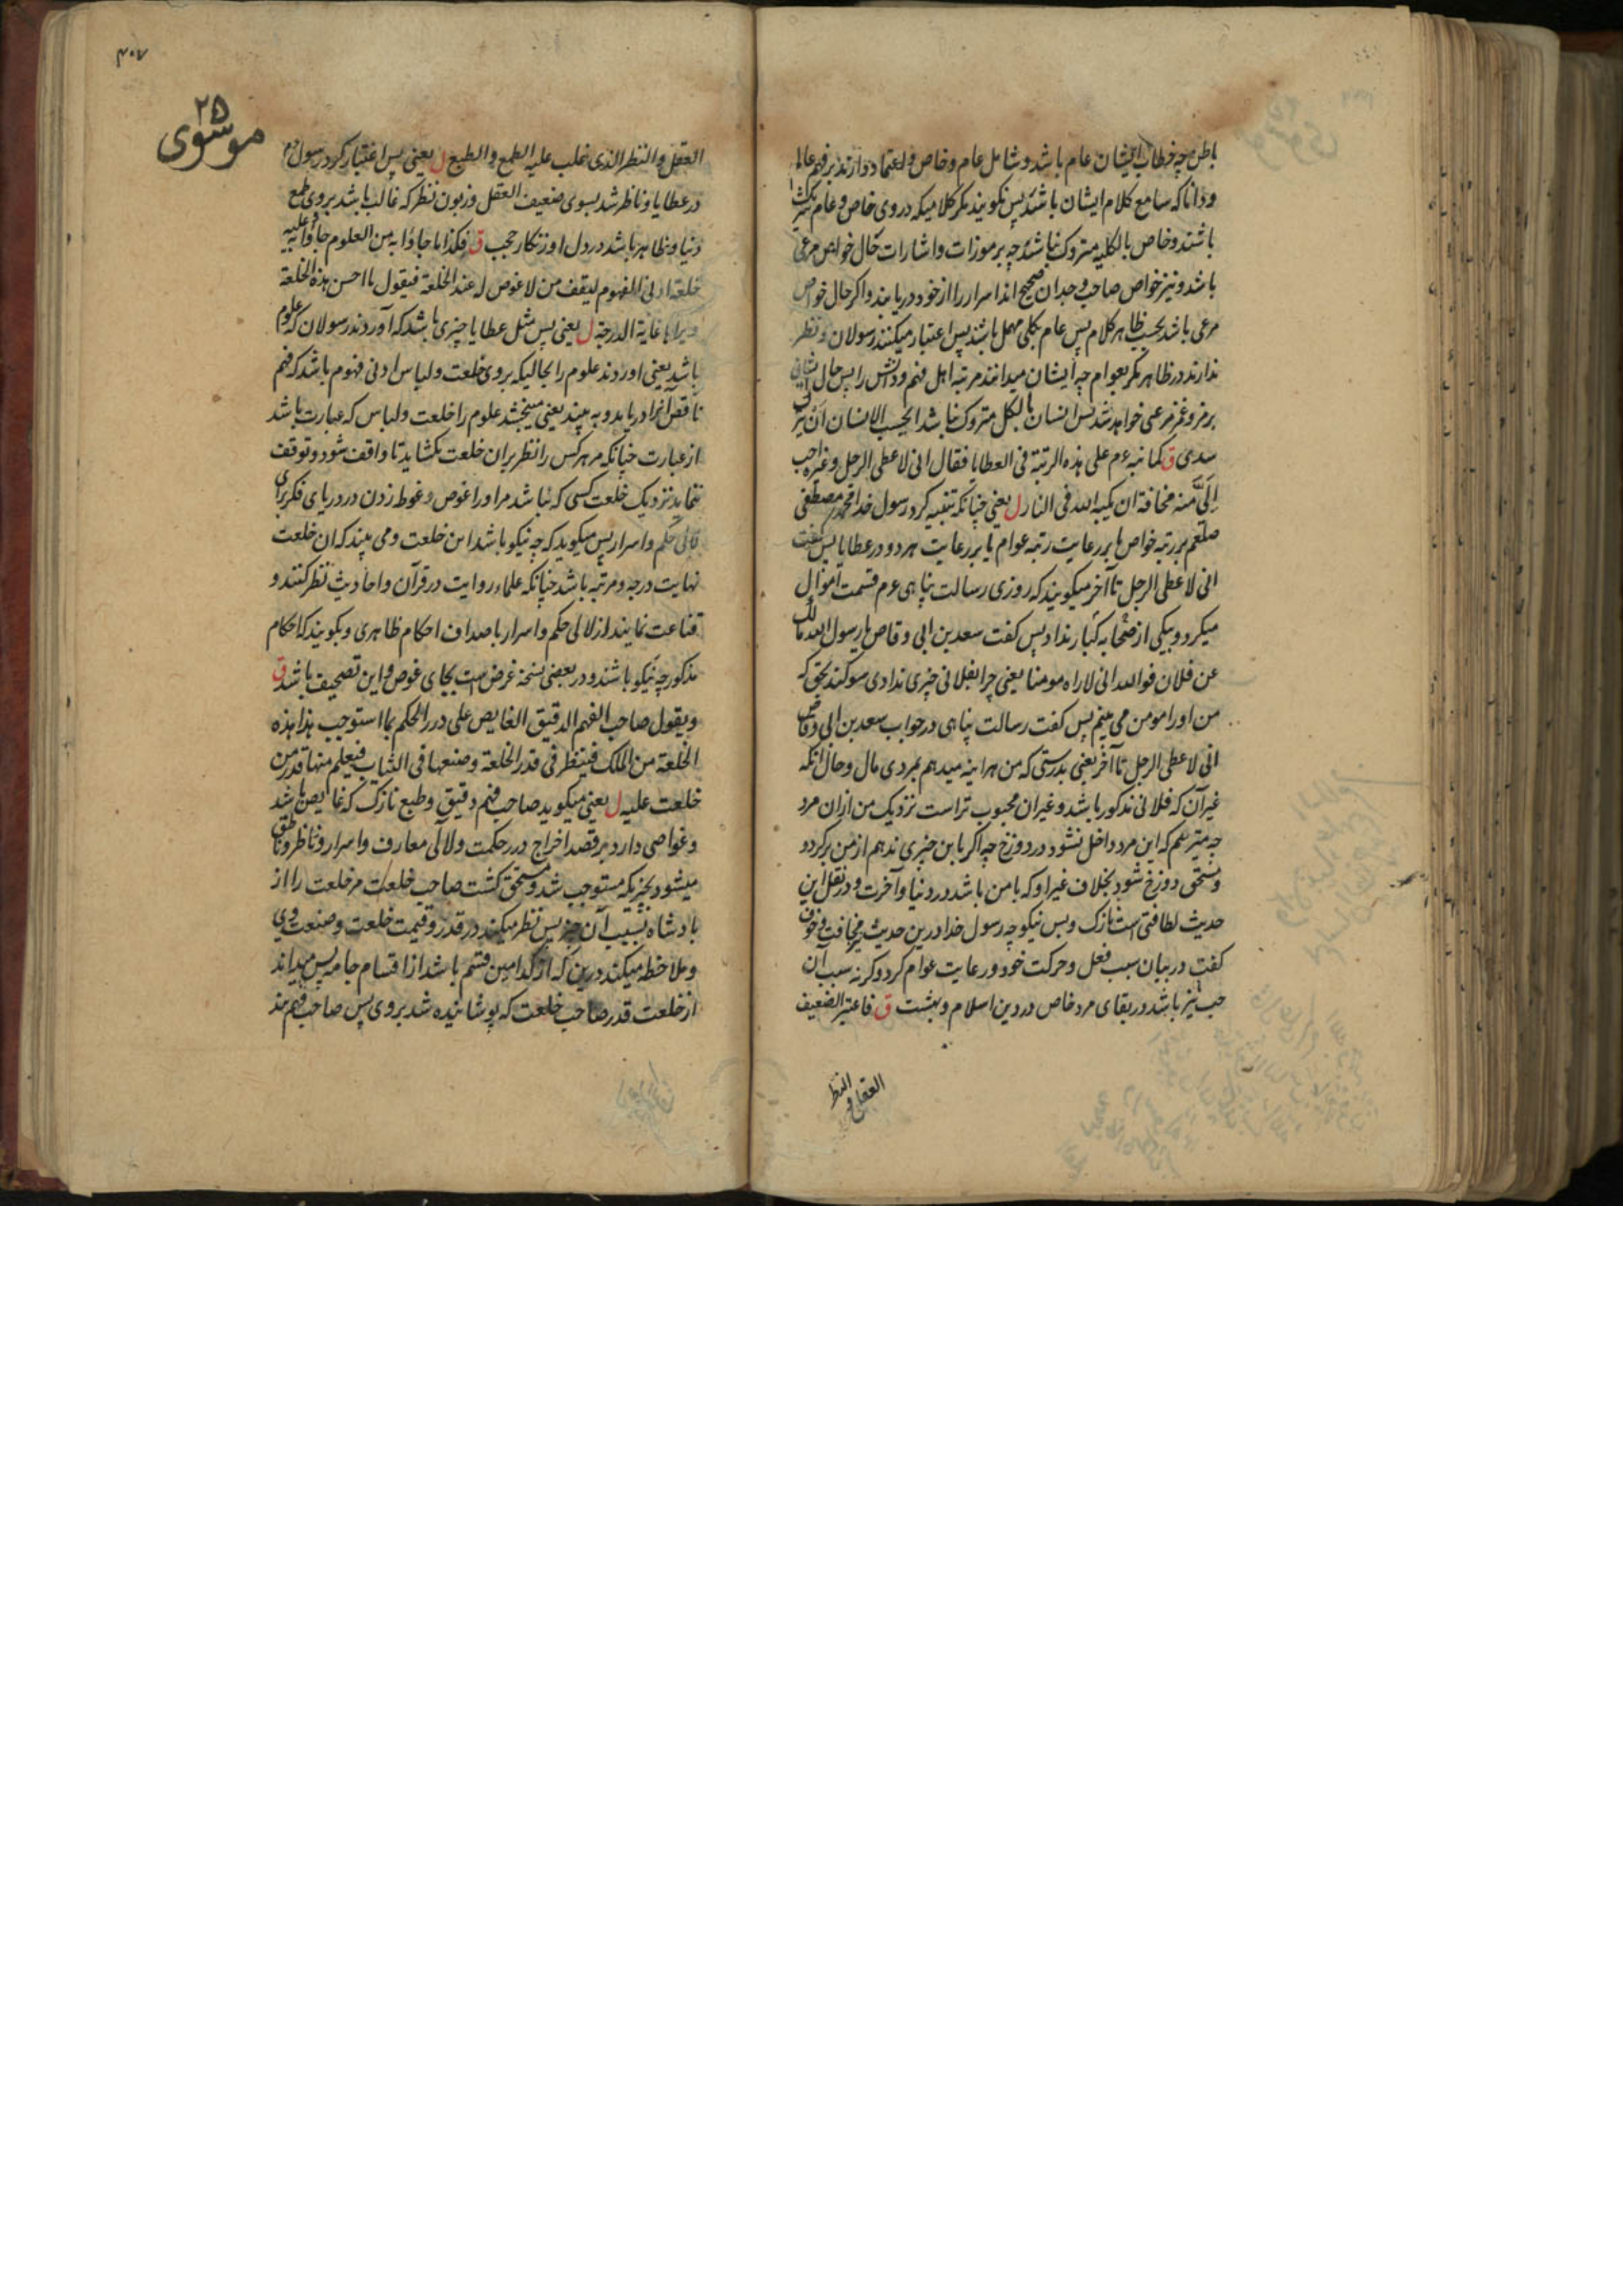 باطن چه خطاب ایشان عام باشد و شامل عام و خاص و اعتماد دارند بر فهم عالم
و دانا که سامع کلام ایشان باشد پس نکویند مکر کلامیکه در وی خاص و عام نیز
باشند و خاص بالکلیه متروک نباشند چه برموزات و اشارات حال خواص مرعی
باشد و نیز خواص صاحب وجدان صحیح اند اسرار را از خود دریابند و اکر حال خواص
مرعی باشد بحسب ظاهر کلام پس عام بکلی مهمل باشند پس اعتبار میکنند رسولان و نظر
ندارند در ظاهر مکر بعوام چه ایشان میدانند مرتبه اهل فهم و دانش را پس حال ایشان
برمز و غمز مرعی خواهد شد پس انسان بالکل متروک نباشد ایحسب الانسان ان یترک
سدی ق کما نبه عم علی هذه الرتبة فی العطایا فقال انی لاعطی الرجل و غیره احب
الیّ منه مخافة ان یکبه الله فی النار ل یعنی چنانکه تنبیه کرد رسول خدا محمد مصطفی
صلعم بر رتبه خواص یا بر رعایت رتبه عوام یا بر رعایت هر دو در عطایا پس کفت
انی لاعطی الرجل تا آخر میکویند که روزی رسالت پناهی عم قسمت اموال
میکرد و بیکی از صحابه کبار نداد پس کفت سعد بن ابی وقاص یا رسول الله مالک
عن فلان فوالله انی لاراه مومنا یعنی چرا بفلانی چیزی ندادی سوکند بحق که
من او را مومن می بینم پس کفت رسالت پناهی در جواب سعد بن ابی وقاص
انی لاعطی الرجل تا آخر یعنی بدرستی که من هر اینه میدهم بمردی مال و حال آنکه
غیر آن که فلانی مذکور باشد و غیر ان محبوب تر است نزدیک من ازان مرد
چه میترسم که این مرد داخل نشود در دوزخ چه اکر باین چیزی ندهم از من برکردد
و مستحق دوزخ شود بخلاف غیر او که با من باشد در دنیا و آخرت و در نقل این
حدیث لطافتی است نازک و بس نیکو چه رسول خدا درین حدیث مخافت و خوف
کفت در بیان سبب فعل و حرکت خود و رعایت عوام کرد و کرنه سبب آن
حب نیز باشد در بقای مرد خاص در دین اسلام و بهشت ق فاعتبر الضعیف
العقل و النظر
۴۰۷
۲۵
موسوی
العقل و النظر الذی غلب علیه الطمع و الطبع ل یعنی پس اعتبار کرد رسول عم
در عطایا و ناظر شد بسوی ضعیف العقل و زبون نظر که غالب باشد بر وی طمع
دنیا و ظاهر باشد در دل او زنکار حجب ق فکذا ما جاؤا به من العلوم جاؤا و علیه
خلعة ادنی الفهوم لیقف من لا غوص له عند الخلعة فیقول ما احسن هذه الخلعة
و یراها غایة الدرجة ل یعنی پس مثل عطایا چیزی باشد که آوردند رسولان که علوم
باشد یعنی اوردند علوم را بحالیکه بر وی خلعت و لباس ادنی فهوم باشد که فهم
ناقص آنرا دریابد و به بیند یعنی میبخشد علوم را خلعت و لباس که عبارت باشد
از عبارت چنانکه مر هر کس را نظر بران خلعت بکشاید تا واقف شود و توقف
نماید نزدیک خلعت کسی که نباشد مر او را غوص و غوط زدن در دریای فکر برای
لالی حکم و اسرار پس میکوید که چه نیکو باشد این خلعت و می بیند که ان خلعت
نهایت درجه و مرتبه باشد چنانکه علماء روایت در قرآن و احادیث نظر کنند و
قناعت نمایند از لالی حکم و اسرار باصداف احکام ظاهری و بکویند که احکام
مذکور چه نیکو باشند و در بعضی نسخه غرض است بجای غوص و این تصحیف باشد ق
و یقول صاحب الفهم الدقیق الغایص علی درر الحکم بما استوجب هذا هذه
الخلعة من الملک فینظر فی قدر الخلعة و صنعها فی الثیاب فیعلم منها قدر من
خلعت علیه ل یعنی میکوید صاحب فهم دقیق و طبع نازک که غایص باشد
و غواصی دارد بر قصد اخراج درر حکمت و لالی معارف و اسرار و ناظر و ناطق
میشود بچیزیکه مستوجب شد و مستحق کشت صاحب خلعت مر خلعت را از
بادشاه بسبب آن چیز پس نظر میکند در قدر و قیمت خلعت و صنعت وی
و ملاحظه میکند درین که از کدامین قسم باشد از اقسام جامه پس میداند
از خلعت قدر صاحب خلعت که پوشانیده شد بر وی پس صاحب فهم بند